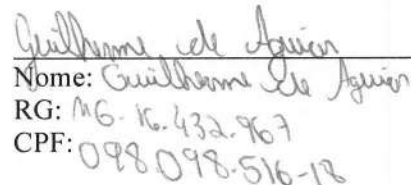 Guilherme de Aguiar
Nome: Guilherme de Aguiar
RG: MG-16.432.967
CPF: 098.098.516-18